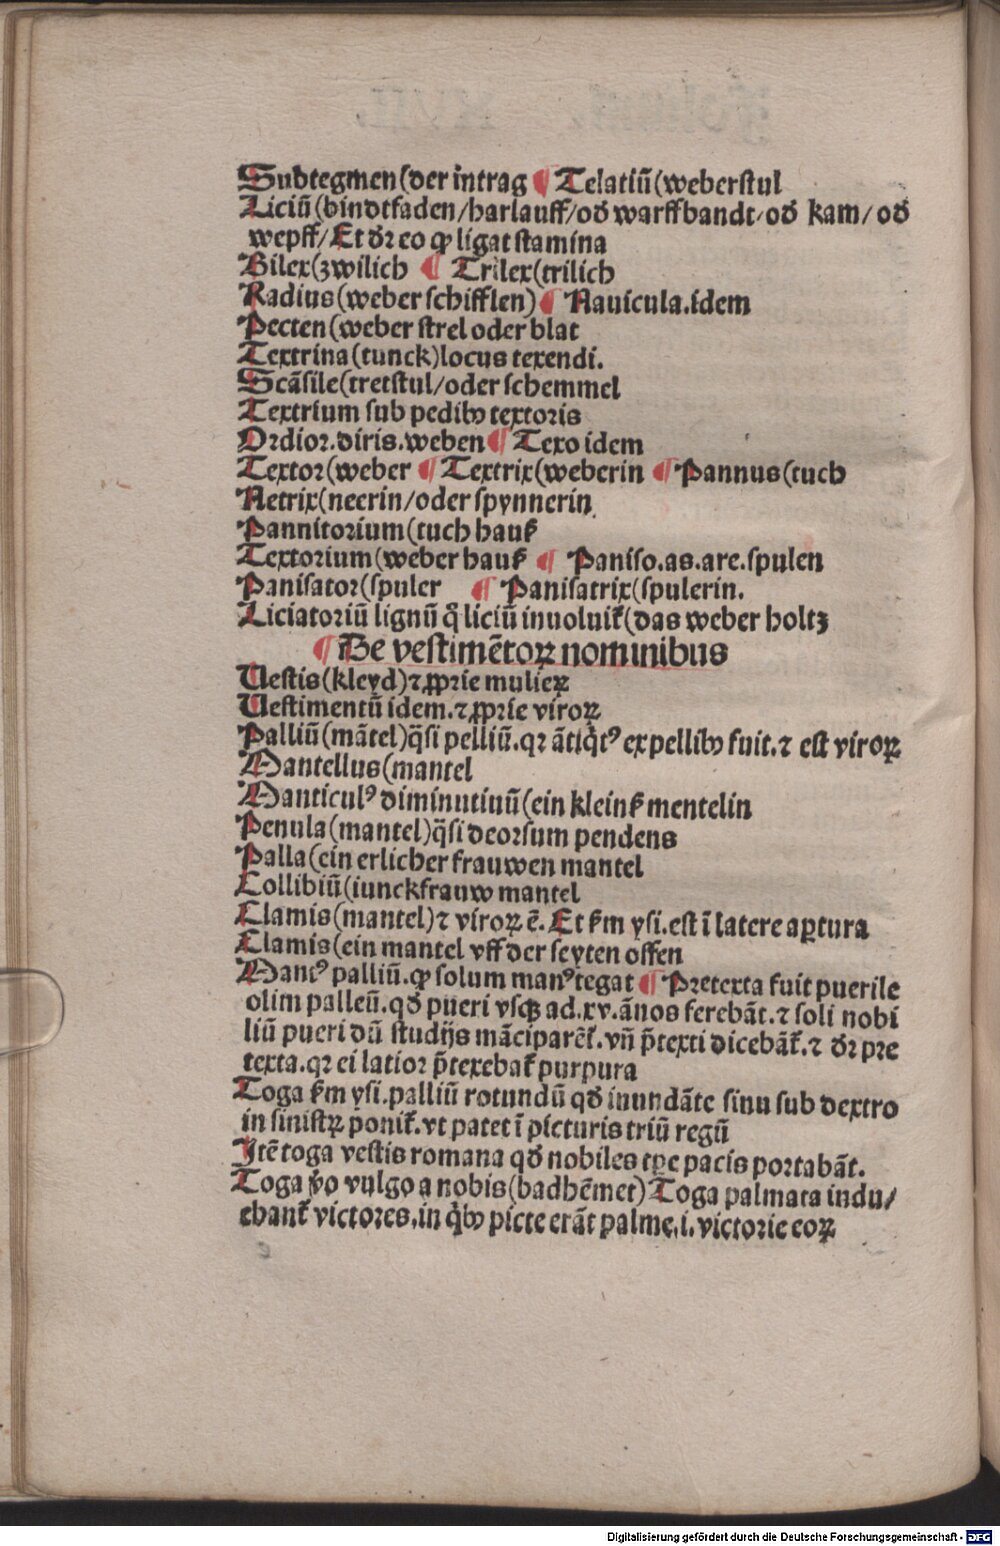 Subtegmen(der intrag ¶ Telatiũ(weberstul
Liciũ(bindtfaden/harlauff/oď warffbandt/oď kam/oď
wepff/Et dꝛ eo ꝙ ligat stamina
Bilex(zwilich ¶ Trilex(trilich
Radius(weber schifflen)¶ Nauicula.idem
Pecten(weber strel oder blat
Textrina(tunck)locus texendi.
Scãsile(tretstul/oder schemmel
Textrium sub pedibꝰ textoris
Oꝛdioꝛ.diris.weben ¶ Texo idem
Textoꝛ(weber ¶ Textrix(weberin ¶ Pannus(tuch
Netrix(neerin/oder spynnerin
Pannitoꝛium(tuch hauß
Textoꝛium(weber hauß ¶ Paniso.as.are.spulen
Panisatoꝛ(spuler ¶ Panisatrix(spulerin.
Liciatoꝛiũ lignũ q̃ liciũ inuoluit̃(das weber holtz
¶ De vestimẽtoꝝ nominibus
Uestis(kleyd)⁊ ꝓpꝛie mulieꝝ
Uestimentũ idem.⁊ ꝓpꝛie viroꝝ
Palliũ(mãtel)q̃si pelliũ.qꝛ ãtiq̃tꝰ ex pellibꝰ fuit.⁊ est viroꝝ
Mantellus(mantel
Manticulꝰ diminutiuũ(ein kleinß mentelin
Penula(mantel)q̃si deoꝛsum pendens
Palla(ein erlicher frauwen mantel
Collibiũ(iunckfrauw mantel
Clamis(mantel)⁊ viroꝝ ẽ.Et ẜm ysi.est ĩ latere aꝑtura
Clamis(ein mantel vff der seyten offen
Mantꝰ palliũ.ꝙ solum manꝰ tegat ¶ Pꝛetexta fuit puerile
olim palleũ.qď pueri vsqꝫ ad.xv.ãnos ferebãt.⁊ soli nobi
liũ pueri dũ studijs mãciparẽt̃.vñ p̃texti dicebãt̃.⁊ dꝛ pꝛe
texta.qꝛ ei latioꝛ p̃texebat̃ purpura
Toga ẜm ysi.palliũ rotundũ qď inundãte sinu sub dextro
in sinistꝝ ponit̃.vt patet ĩ picturis triũ regũ
Itẽ toga vestis romana qď nobiles tꝑe pacis poꝛtabãt.
Toga ṽo vulgo a nobis(badhẽmet)Toga palmata indu/
ebant̃ victoꝛes.in q̃bꝰ picte erãt palme.i.victoꝛie eoꝝ
Digitalisierung gefördert durch die Deutsche Forschungsgemeinschaft - DFG